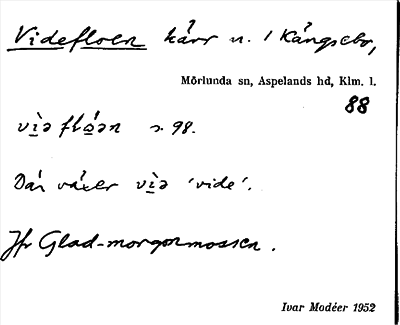 Videfloen kärr n. / Kångsebo,
Mörlunda sn, Aspelands hd, Klm. l.
88
vìə flóən s. 98.
Där växer vìə 'vide'.
Jfr Glad-morgonmossen.
Ivar Modéer 1952